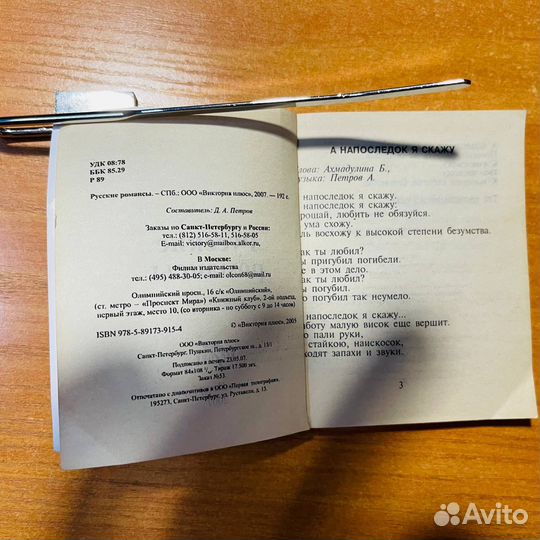 УДК 08:78
ББК 85.29
Р 89
Русские романсы. – СПб.: ООО «Виктория плюс», 2007. — 192 с.
Составитель: Д. А. Петров
Заказы по Санкт-Петербургу и России:
тел.: (812) 516-58-11, 516-58-05
E-mail: victory@mailbox.alkor.ru,
В Москве:
Филиал издательства
тел.: (495) 488-30-05; e-mail: olcon68@mail.ru
Олимпийский просп., 16 с/к «Олимпийский»,
(ст. метро – «Проспект Мира») «Книжный клуб», 2-ой подъезд,
первый этаж, место 10, (со вторника - по субботу с 9 до 14 часов)
ISBN 978-5-89173-915-4
© «Виктория плюс», 2005
ООО «Виктория плюс»
Санкт-Петербург, Пушкин, Петербургское ш., д. 13/1
Подписано в печать 23.05.07.
Формат 84х108 Тираж 17 500 экз.
Заказ №53
Отпечатано с диапозитивов в ООО «Первая типография».
195273, Санкт-Петербург, ул. Руставели, д. 13.
А НАПОСЛЕДОК Я СКАЖУ
лова: Ахмадулина Б.,
узыка: Петров А.
напоследок я скажу.
напоследок я скажу:
рощай, любить не обязуйся.
ума схожу.
ль восхожу к высокой степени безумства.
ак ты любил?
ы пригубил погибели.
е в этом дело.
ак ты любил?
ы погубил.
о погубил так неумело.
напоследок я скажу...
аботу малую висок еще вершит.
о пали руки,
стайкою, наискосок,
ходят запахи и звуки.
3
Avito